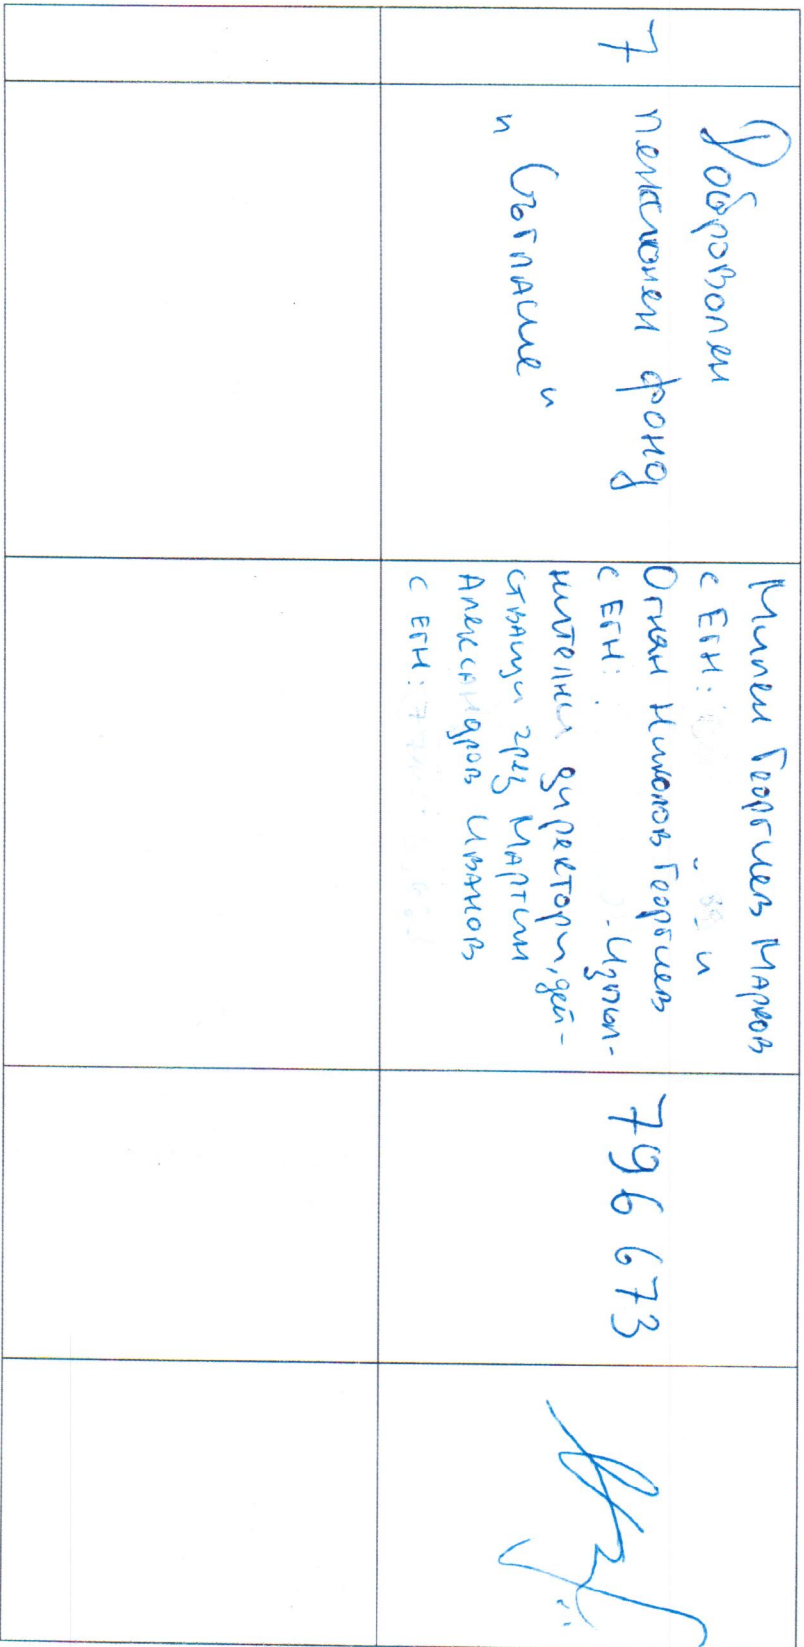 7
Доброволен
пенсионен фонд
"Съгласие"
Милен Георгиев Марков
с ЕГН: и
Огнян Николов Георгиев
с ЕГН: . Изпъл-
нителни директори, дей-
стващи чрез Мартин
Александров Иванов
с ЕГН:
796 673